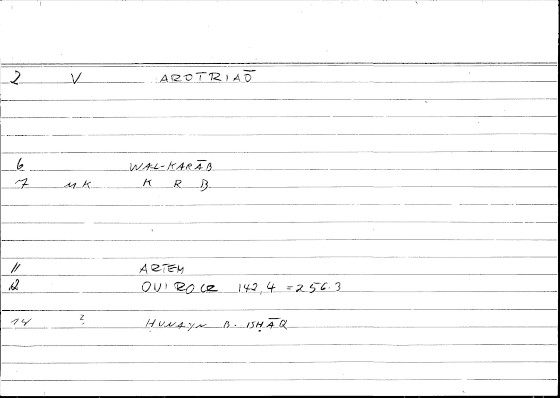 2 V AROTRIAŌ
6 WAL-KARĀB
7 MK K R B
11 ARTEM
12 OVI ROCR 142,4 = 256.3
14 ? ḤUNAYN B. ISḤĀQ